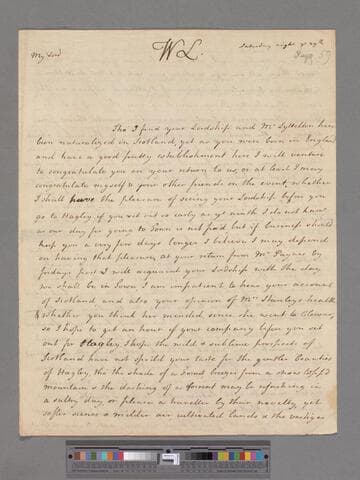 W L.
Saturday night ye 29th
My Lord
59
Tho I find your Lordship and Mr Lyttelton have
been naturalized in Scotland, yet as you were born in England
and have a good pretty establishment here I will venture
to congratulate you on your return to us, or at least I may
congratulate myself & your other friends on the event, whether
I shall have the pleasure of seeing your Lordship before you
go to Hagley, if you sit out so early as ye month I do not know
as our day for going to Town is not fixed but if business should
keep you a very few days longer I believe I may depend
on having that pleasure, at your return from Mr
by
fridays post I will acquaint your Lordship with the day
we shall be in Town I am impatient to hear your account
of Scotland and also your opinion of Mrs Stanleys health
& whether you think her mended since she went to
so I hope to get an hour of your company before you set
out for Hagley, I hope the wild & sublime prospects of
Scotland have not spoild your taste for the gentler beauties
of Hagley, tho the shade of a Forest breeze from a snow topp'd
mountain & the dashing of a torrent may be refreshing in
a sultry day or please a traveller by their novelty, yet
softer scenes & milder air cultivated lands & the vestiges